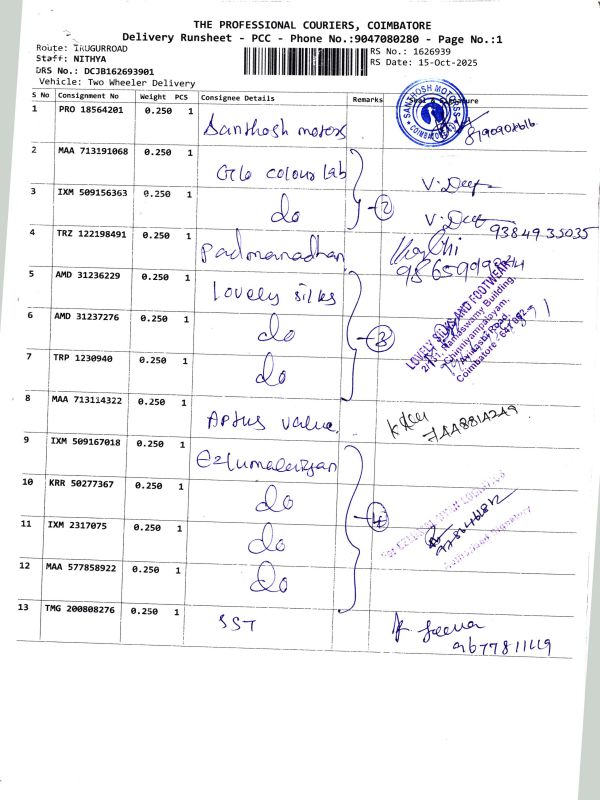 THE PROFESSIONAL COURIERS, COIMBATORE
Delivery Runsheet - PCC - Phone No.:9047080280 - Page No.:1
Route: IRUGURROAD
RS No.: 1626939
Staff: NITHYA
RS Date: 15-Oct-2025
DRS No.: DCJB162693901
Vehicle: Two Wheeler Delivery
S No Consignment No Weight PCS Consignee Details Remarks Seal & Signature
1 PRO 18564201 0.250 1 Santhosh motors
SANTHOSH MOTORS COIMBATORE
2 MAA 713191068 0.250 1 colour lab
V. Deep
3 IXM 509156363 0.250 1 do 2
V. Deep 9384935035
4 TRZ 122198491 0.250 1 Padmanadhan
5 AMD 31236229 0.250 1 Lovely silks
LOVELY SILKS AND FOOTWEAR
2/151, Ramaswamy Building,
Chinniyampalayam,
Avinashi Road,
Coimbatore - 641 062
6 AMD 31237276 0.250 1 do 3
7 TRP 1230940 0.250 1 do
8 MAA 713114322 0.250 1 Aptus value
9 IXM 509167018 0.250 1
10 KRR 50277367 0.250 1 do
11 IXM 2317075 0.250 1 do 4
Authorised Signatory
12 MAA 577858922 0.250 1 do
13 TMG 200808276 0.250 1 SST
9677811119